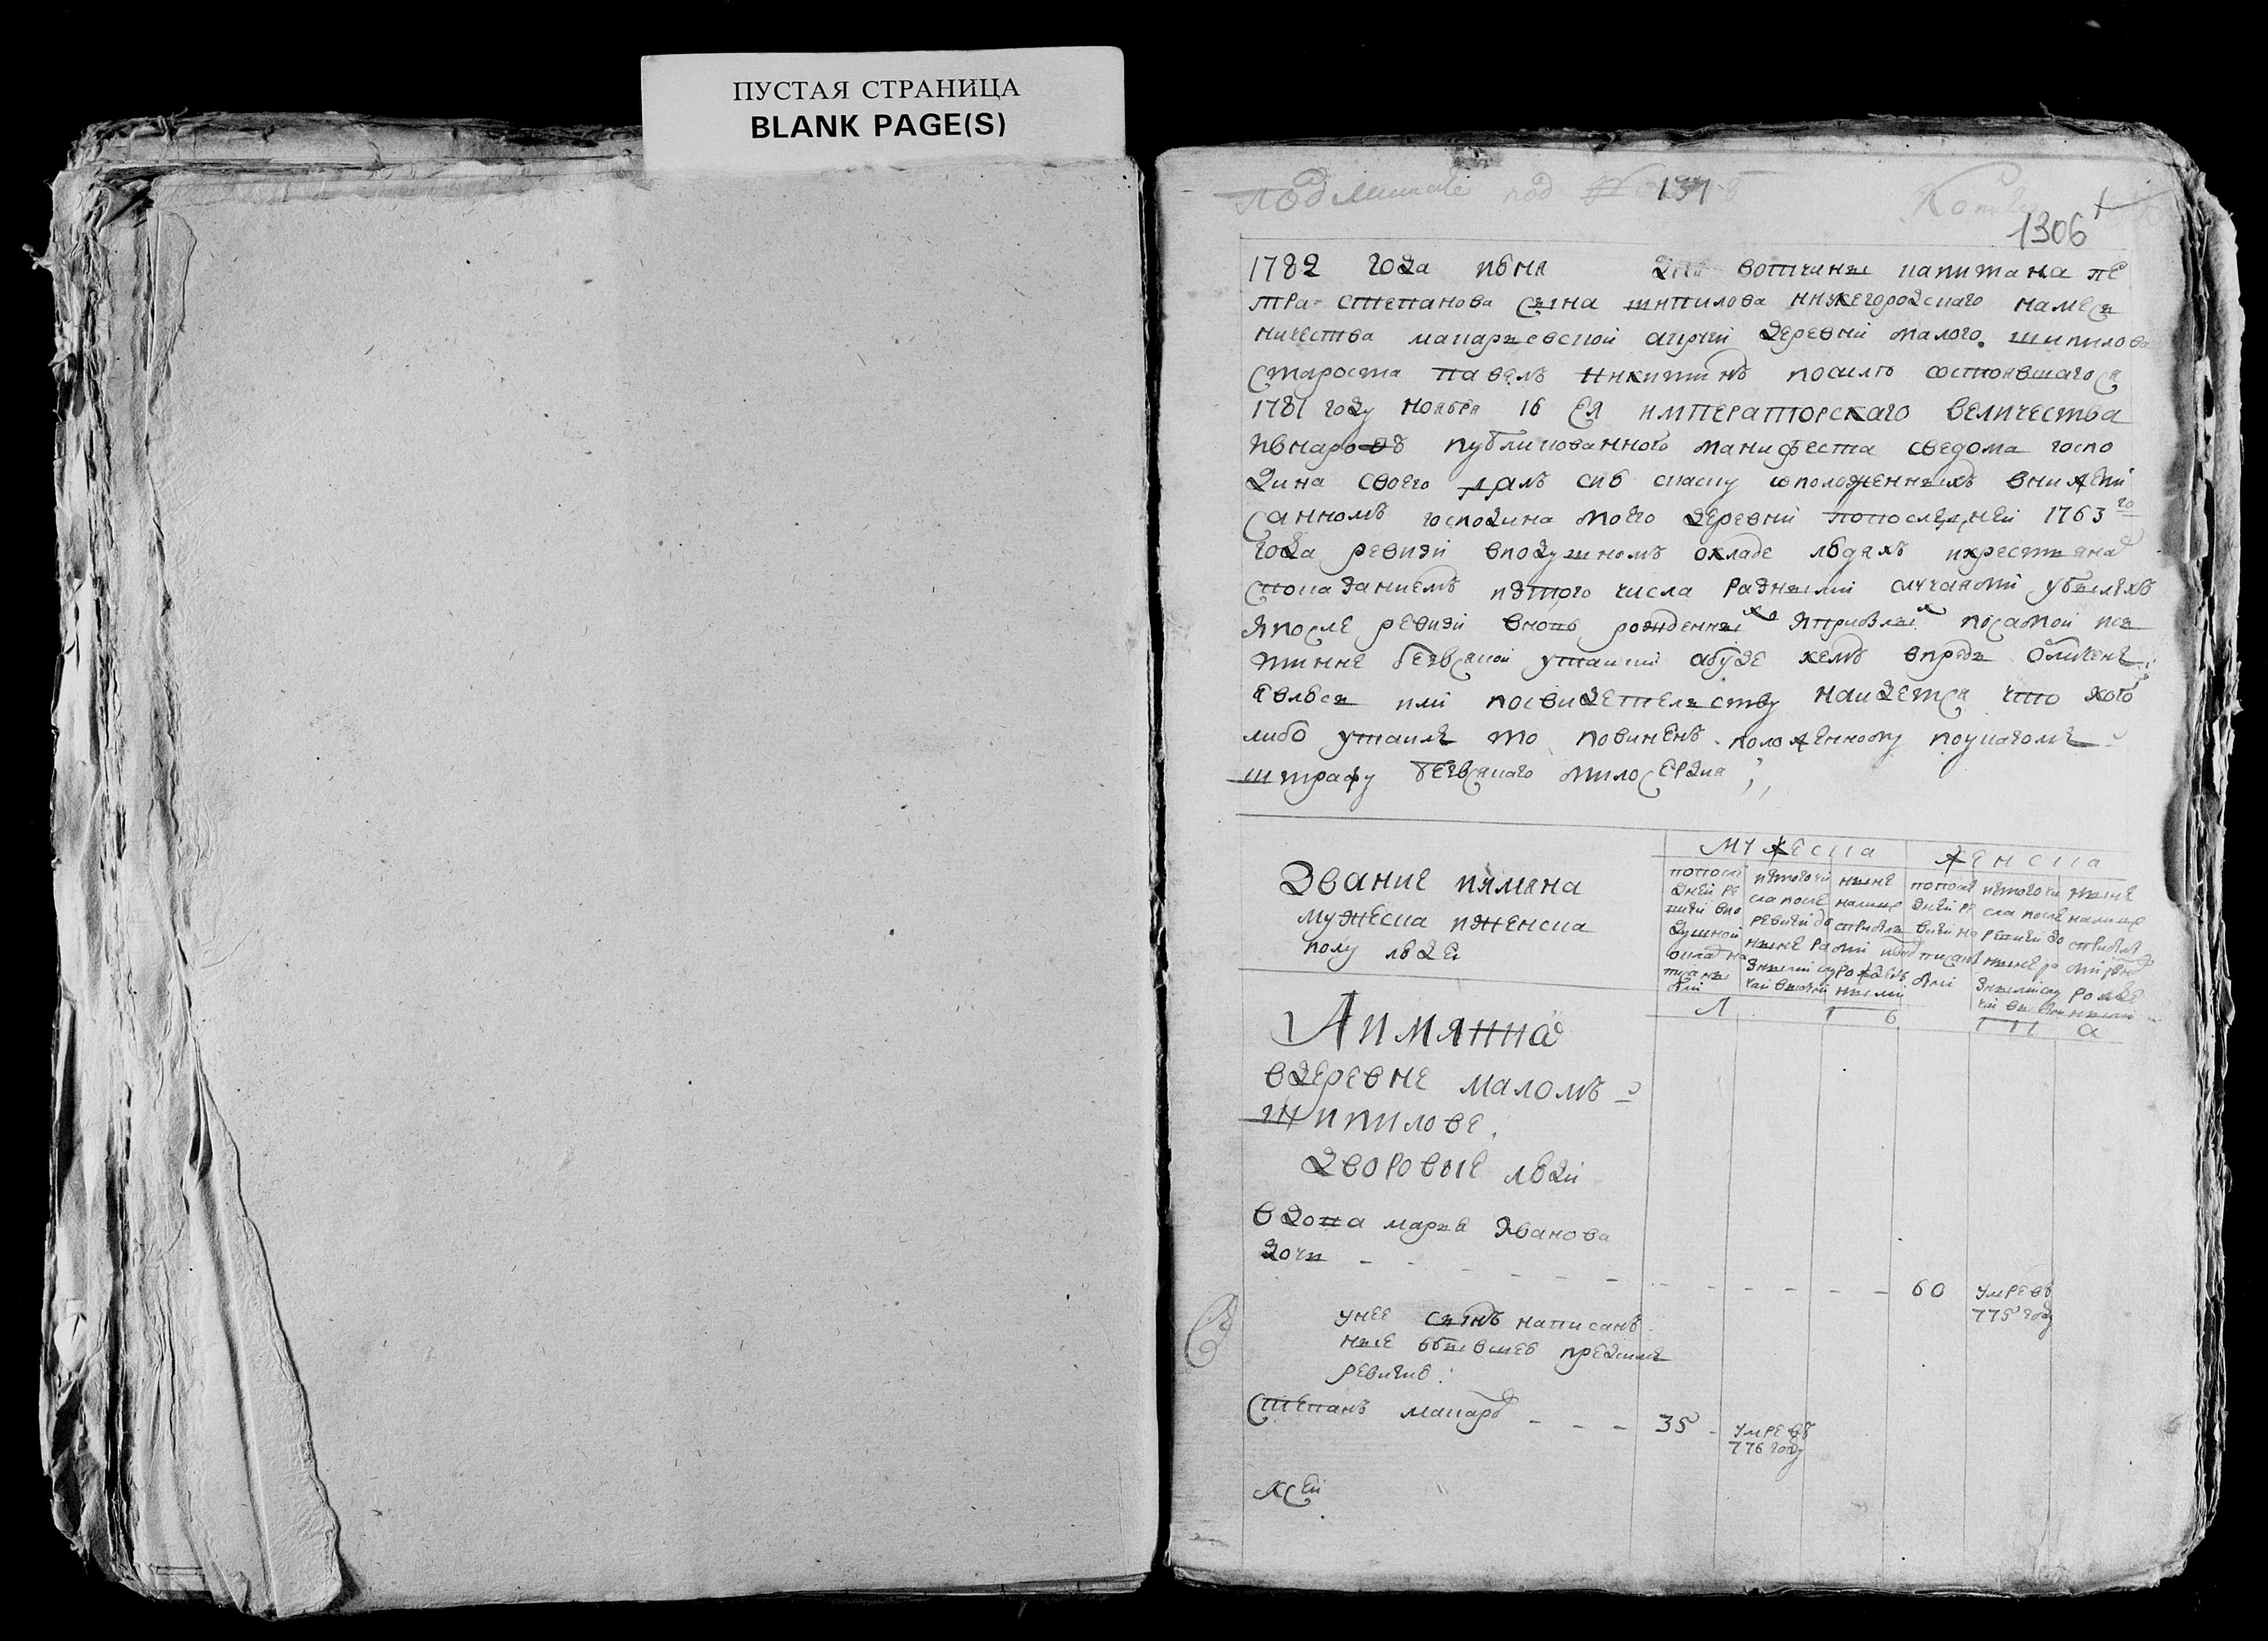 ПУСТАЯ СТРАНИЦА
BLANK PAGE(S)
под 131
1306
1782 года июня дня вотчины капитана пе
тра степанова сына шипилова нижегородскаго намес
ничества макарьевской округи деревни малого шипилова
староста павелъ никитинъ по силе состоявшагося
1781 году ноября 16 ея императорскаго величества
и внародъ публикованного манифеста сведома госпо
дина своего далъ сию скаску о положенныхъ в нижепи
санномъ господина моего деревни по последней 1763 го
года ревизи в подушномъ окладе людяхъ и крестьянах
с показаниемъ из того числа разными случаями убылыхъ
и после ревизи вновь рожденных и прибылых по самой ис
тинне безвсякой утаики а буде кемъ впредь обличенъ
явлюсь или по свидетельству наидется что кого
либо утаилъ то повиненъ положенному по указомъ
штрафу безвсякаго милосердия
мужеска женска
Звание и имяна
мужеска и женска
полу людеи
по после
дней ре
визи в по
душной
оклад на
писаны
были
из того чи
сла после
ревизи до
ныне ра
зными слу
чаи выбыли
ныне
налицо
с прибылы
ми и вновь
рожден
ными
по после
дней ре
визи на
писаны
были
из того чи
сла после
ревизи до
ныне ра
зными слу
чаи выбыли
ныне
налицо
с прибылы
ми и вновь
рожде
нными
Л т б т а
А имянно
в деревне маломъ
шипилове
дворовые люди
вдова марья иванова
дочь 60 умре въ
775 году
у нее сынъ написан
ные в бывшею пред симъ
ревизию
степанъ макаров 35 умре въ
776 году
к сей